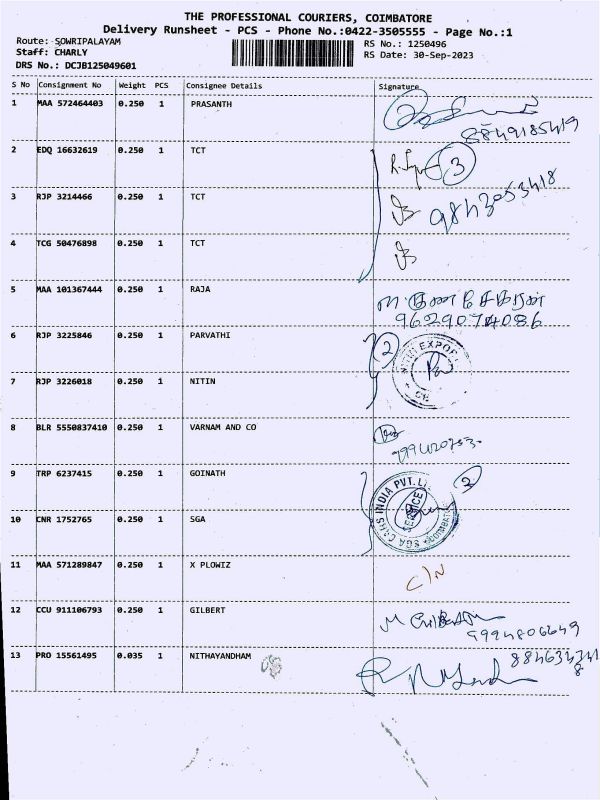 THE PROFESSIONAL COURIERS, COIMBATORE
Delivery Runsheet - PCS - Phone No.:0422-3505555 - Page No.:1
Route: SOWRIPALAYAM
RS No.: 1250496
Staff: CHARLY
RS Date: 30-Sep-2023
DRS No.: DCJB125049601
S No Consignment No Weight PCS Consignee Details Signature
1 MAA 572464403 0.250 1 PRASANTH
8849185419
2 EDQ 16632619 0.250 1 TCT 3
3 RJP 3214466 0.250 1 TCT 9843053418
4 TCG 50476898 0.250 1 TCT
5 MAA 101367444 0.250 1 RAJA
9629074086
6 RJP 3225846 0.250 1 PARVATHI 2
7 RJP 3226018 0.250 1 NITIN
8 BLR 5550837410 0.250 1 VARNAM AND CO
9 TRP 6237415 0.250 1 GOINATH 2
SGA CARS INDIA PVT. L
SERVICE
COIMBATORE
10 CNR 1752765 0.250 1 SGA
11 MAA 571289847 0.250 1 X PLOWIZ C/N
12 CCU 911106793 0.250 1 GILBERT
9994806649
13 PRO 15561495 0.035 1 NITHAYANDHAM